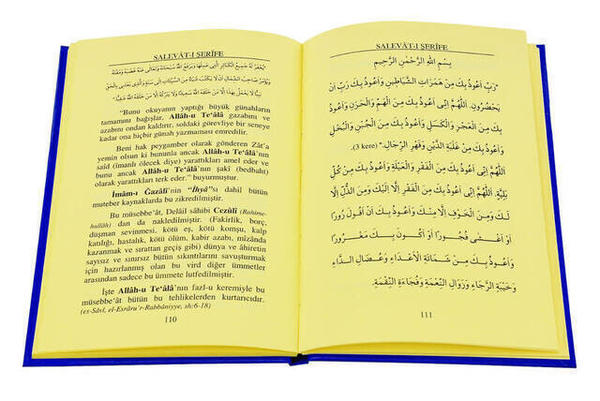 SALEVÂT-I ŞERÎFE
"Bunu okuyanın yaptığı büyük günahların
tamamını bağışlar, Allâh-u Te'âlâ gazabını ve
azabını ondan kaldırır, soldaki görevliye bir seneye
kadar ona hiçbir günah yazmamasını emredilir.
Beni hak peygamber olarak gönderen Zât'a
yemin olsun ki bununla ancak Allâh-u Te'âlâ'nın
saîd (imanlı ölecek diye) yarattıkları amel eder ve
bunu ancak Allâh-u Te'âlâ'nın şakî (bedbaht)
olarak yarattıkları terk eder." buyurmuştur.
İmâm-ı Ğazâlî'nin "İhyâ"sı dahil bütün
muteber kaynaklarda bu zikredilmiştir.
Bu müsebbe'ât, Delâil sâhibi Cezûlî (Rahime-
hullâh) dan da nakledilmiştir. (Fakirlik, borç,
düşman sevinmesi, kötü eş, kötü komşu, kalp
katılığı, hastalık, kötü ölüm, kabir azabı, mîzânda
kazanmak ve sırattan geçiş gibi) dünya ve âhiretin
sayısız ve sınırsız bütün sıkıntılarını savuşturmak
için hazırlanmış olan bu vird diğer ümmetler
arasından sadece bu ümmete lutfedilmiştir.
İşte Allâh-u Te'âlâ'nın fazl-u keremiyle bu
müsebbe'ât bütün bu tehlikelerden kurtarıcıdır.
(es-Sâvî, el-Esrâru'r-Rabbâniyye, sh:6-18)
110
SALEVÂT-I ŞERÎFE
بِسْمِ اللَّهِ الرَّحْمٰنِ الرَّحِيمِ
"رَبِّ أَعُوذُ بِكَ مِنْ هَمَزَاتِ الشَّيَاطِينِ وَأَعُوذُ بِكَ رَبِّ أَنْ
يَحْضُرُونِ. اَللَّهُمَّ إِنِّي أَعُوذُ بِكَ مِنَ الْهَمِّ وَالْحَزَنِ وَأَعُوذُ
بِكَ مِنَ الْعَجْزِ وَالْكَسَلِ وَأَعُوذُ بِكَ مِنَ الْجُبْنِ وَالْبُخْلِ
وَأَعُوذُ بِكَ مِنْ غَلَبَةِ الدَّيْنِ وَقَهْرِ الرِّجَالِ." (3 kere)
اَللَّهُمَّ إِنِّي أَعُوذُ بِكَ مِنَ الْفَقْرِ وَالْعَيْلَةِ وَأَعُوذُ بِكَ مِنْ كُلِّ
بَلِيَّةٍ. اَللَّهُمَّ إِنِّي أَعُوذُ بِكَ مِنَ الْفَقْرِ إِلَّا إِلَيْكَ وَمِنَ الذُّلِّ إِلَّا
لَكَ وَمِنَ الْخَوْفِ إِلَّا مِنْكَ وَأَعُوذُ بِكَ أَنْ أَقُولَ زُورًا
أَوْ أَغْشَى فُجُورًا أَوْ أَكُونَ بِكَ مَغْرُورًا
وَأَعُوذُ بِكَ مِنْ شَمَاتَةِ الْأَعْدَاءِ وَعُضَالِ الدَّاءِ
وَخَيْبَةِ الرَّجَاءِ وَزَوَالِ النِّعْمَةِ وَفُجَاءَةِ النِّقْمَةِ.
111